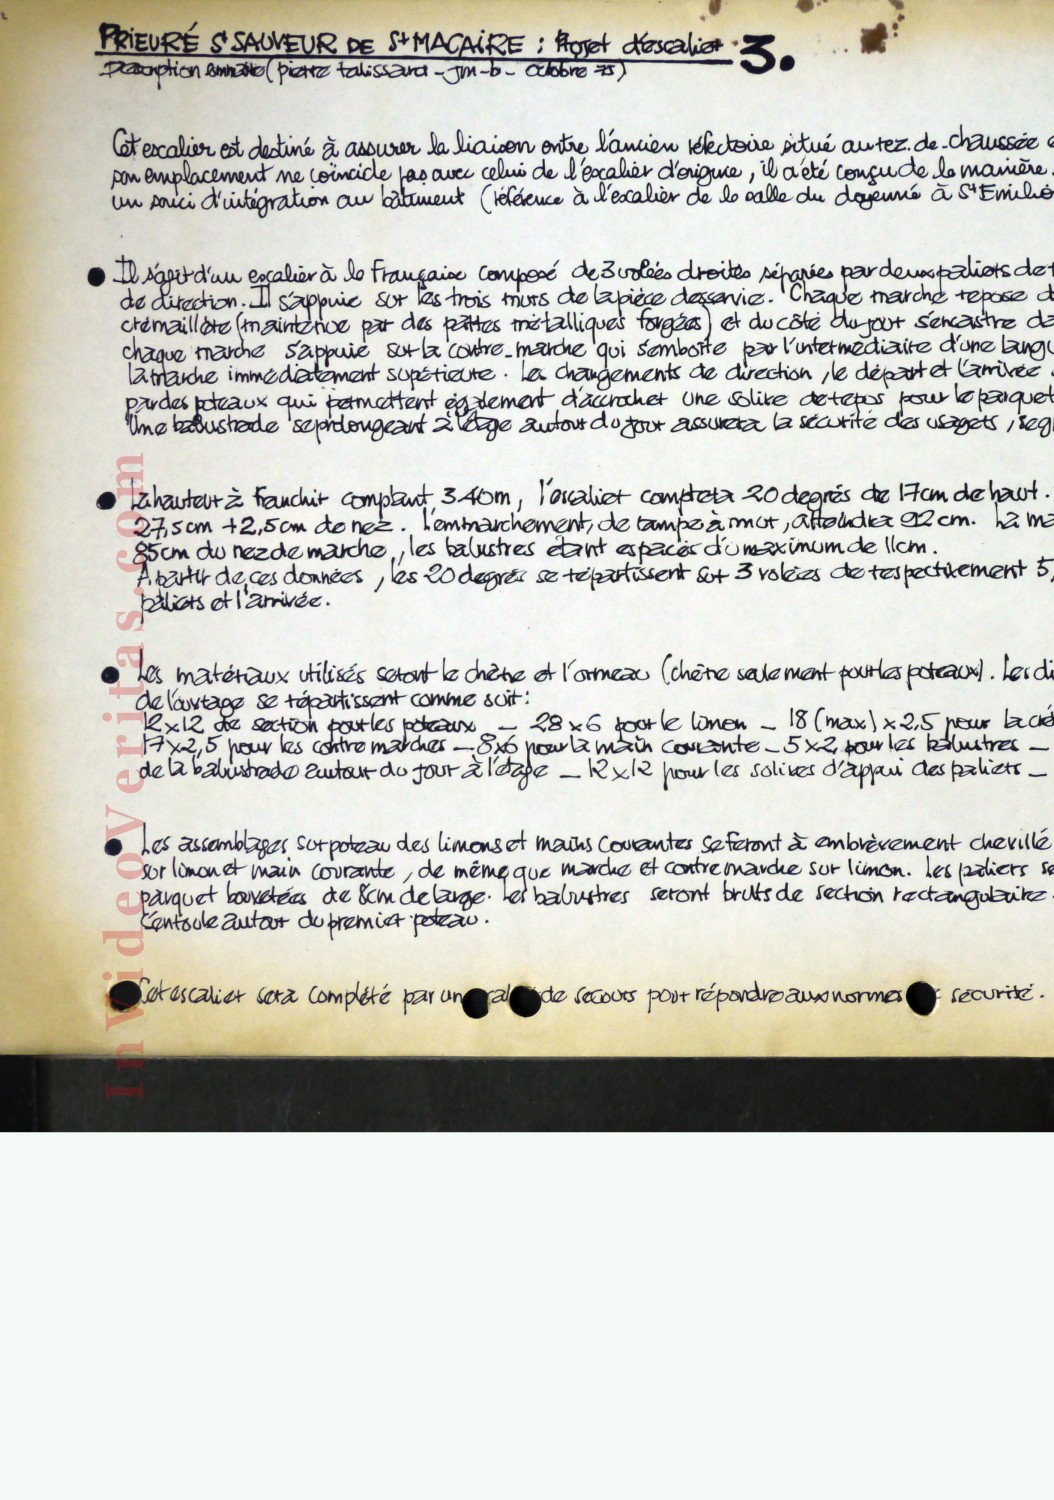 PRIEURÉ St SAUVEUR DE St MACAIRE : Projet d'escalier 3.
Description sommaire (pierre talissard - jm-b - octobre 75)
Cet escalier est destiné à assurer la liaison entre l'ancien réfectoire situé au rez-de-chaussée
son emplacement ne coïncide pas avec celui de l'escalier d'origine, il a été conçu de la manière
un souci d'intégration au bâtiment (référence à l'escalier de la salle du doyenné à St Emilio
● Il s'agit d'un escalier à la Française composé de 3 volées droites séparées par deux paliers de
de direction. Il s'appuie sur les trois murs de la pièce desservie. Chaque marche repose
crémaillère (maintenue par des pattes métalliques forgées) et du côté du jour s'encastre da
chaque marche s'appuie sur la contre-marche qui s'emboîte par l'intermédiaire d'une langu
la marche immédiatement supérieure. Les changements de direction, le départ et l'arrivée
par des poteaux qui permettent également d'accrocher une solive de repos pour le parquet
Une balustrade se prolongeant à l'étage autour du jour assurera la sécurité des usagers,
● La hauteur à franchir comptant 3.40m, l'escalier comptera 20 degrés de 17cm de haut.
27,5cm + 2,5cm de nez. L'emmarchement, de rampe à mur, atteindra 92cm. La ma
85cm du nez de marche, les balustres étant espacés d'un maximum de 11cm.
A partir de ces données, les 20 degrés se répartissent sur 3 volées de respectivement 5,
paliers et l'arrivée.
● Les matériaux utilisés seront le chêne et l'ormeau (chêne seulement pour les poteaux). Les di
de l'ouvrage se répartissent comme suit :
12x12 de section pour les poteaux - 28x6 pour le limon - 18 (max) x 2,5 pour la cré
17x2,5 pour les contremarches - 8x6 pour la main courante - 5x2 pour les balustres -
de la balustrade autour du jour à l'étage - 12x12 pour les solives d'appui des paliers -
● Les assemblages sur poteau des limons et mains courantes se feront à embrèvement chevillé
sur limon et main courante, de même que marche et contremarche sur limon. Les paliers se
parquet bouvetées de 8cm de large. Les balustres seront bruts de section rectangulaire.
s'enroule autour du premier poteau.
Cet escalier sera complété par un de secours pour répondre aux normes sécurité.
InVideoVeritas.com